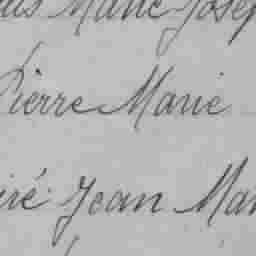 Marie Josep
Pierre Marie
iré Jean Mar